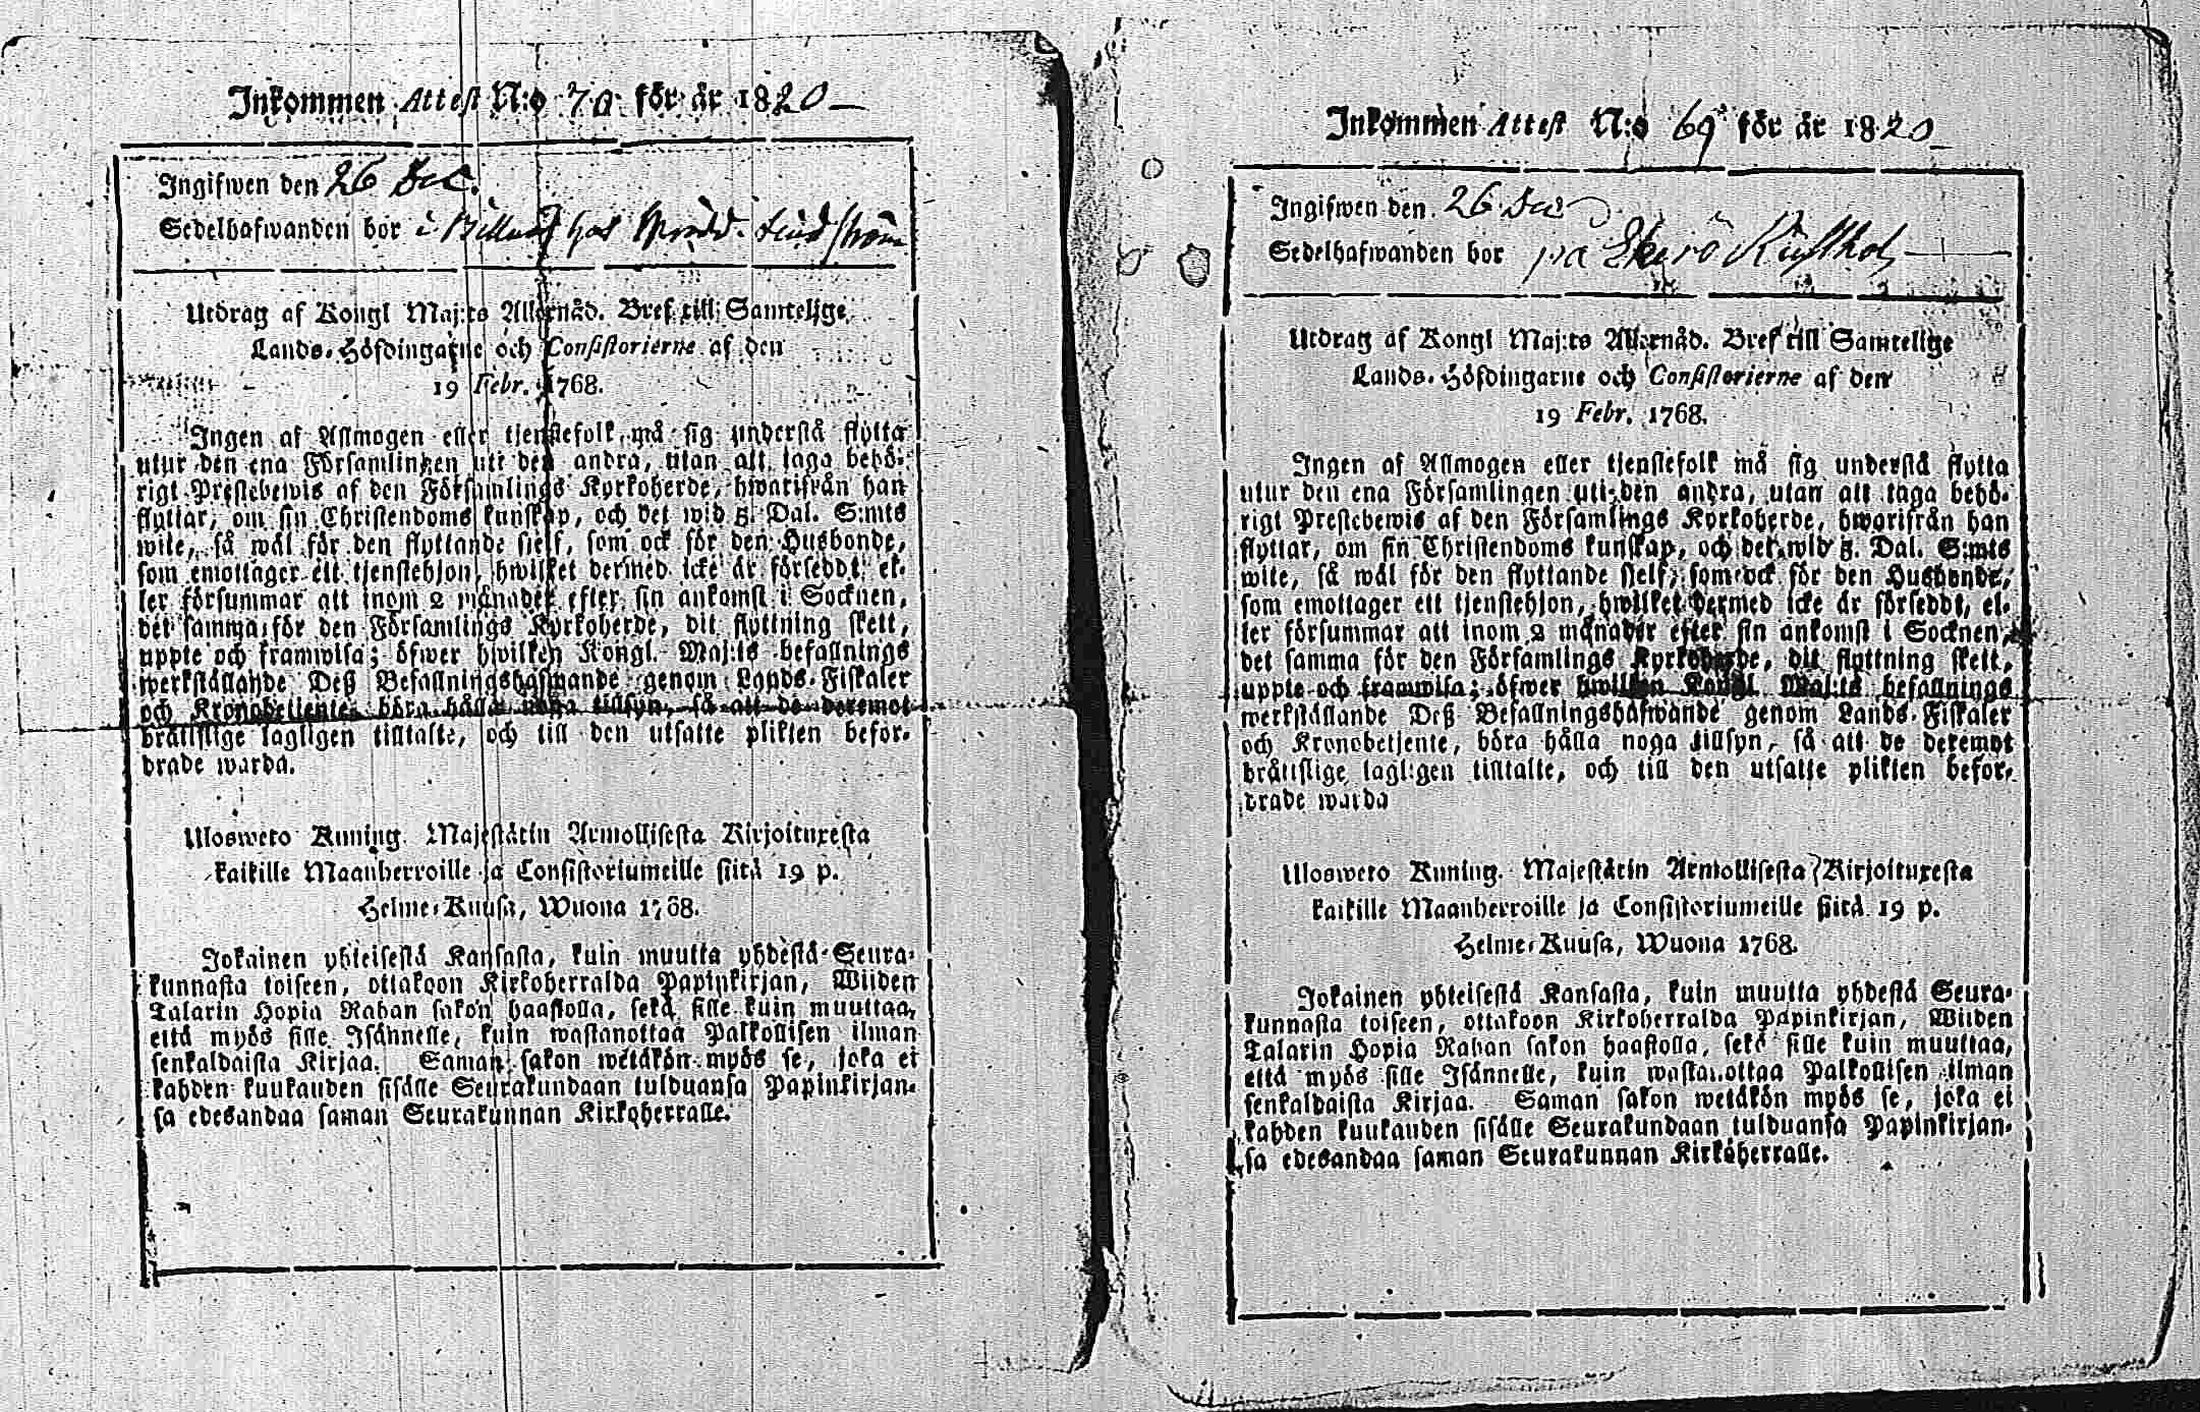 Inkommen Attest N:o 70 för år 1820
Ingifwen den 26 Dec.
Sedelhafwanden bor i hos Lindström
Utdrag af Kongl Maj:ts Allernåd. Bref till Samtelige
Lands-Höfdingarne och Consistorierne af den
19 Febr. 1768.
Ingen af Allmogen eller tjenstefolk må sig understå flytta
utur den ena Församlingen uti den andra, utan att taga behö-
rigt Prestebewis af den Församlings Kyrkoherde, hwarifrån han
flyttar, om sin Christendoms kunskap, och det wid 5. Dal. S:mts
wite, så wäl för den flyttande sjelf, som ock för den Husbonde,
som emottager ett tjenstehjon, hwilket dermed icke är försedd; el-
ler försummar att inom 2 månader efter sin ankomst i Socknen,
det samma för den Församlings Kyrkoherde, dit flyttning skett,
uppte och framwisa; öfwer hwilken Kongl. Maj:ts befallnings
werkställande Deß Befallningshafwande genom Lands-Fiskaler
och Kronobetjente, böra hålla noga tillsyn, så att de deremot
bråttslige lagligen tilltalte, och till den utsatte plikten befor-
drade warda.
Ulosweto Kuning. Majestätin Armollisesta Kirjoituxesta
kaikille Maanherroille ja Consistoriumeille siitä 19 p.
Helme-Kuusa, Wuona 1768.
Jokainen yhteisestä Kansasta, kuin muutta yhdestä Seura-
kunnasta toiseen, ottakoon Kirkoherralda Papinkirjan, Wiiden
Talarin Hopia Rahan sakon haastolla, sekä sille kuin muuttaa,
että myös sille Isännelle, kuin wastanottaa Palkollisen ilman
senkaldaista Kirjaa. Saman sakon wetäkön myös se, joka ei
kahden kuukauden sisälle Seurakundaan tulduansa Papinkirjan-
sa edesandaa saman Seurakunnan Kirkoherralle.
Inkommen Attest N:o 69 för år 1820
Ingifwen den 26 Dec
Sedelhafwanden bor på Ekerö Rusthol
Utdrag af Kongl Maj:ts Allernåd. Bref till Samtelige
Lands-Höfdingarne och Consistorierne af den
19 Febr. 1768.
Ingen af Allmogen eller tjenstefolk må sig understå flytta
utur den ena Församlingen uti den andra, utan att taga behö-
rigt Prestebewis af den Församlings Kyrkoherde, hwarifrån han
flyttar, om sin Christendoms kunskap, och det wid 5. Dal. S:mts
wite, så wäl för den flyttande sjelf, som ock för den Husbonde,
som emottager ett tjenstehjon, hwilket dermed icke är försedd, el-
ler försummar att inom 2 månader efter sin ankomst i Socknen,
det samma för den Församlings Kyrkoherde, dit flyttning skett,
uppte och framwisa; öfwer hwilken Kongl Maj:ts befallnings
werkställande Deß Befallningshafwande genom Lands-Fiskaler
och Kronobetjente, böra hålla noga tillsyn, så att de deremot
bråttslige lagligen tilltalte, och till den utsatte plikten befor-
drade warda
Ulosweto Kuning. Majestätin Armollisesta Kirjoituxesta
kaikille Maanherroille ja Consistoriumeille siitä 19 p.
Helme-Kuusa, Wuona 1768.
Jokainen yhteisestä Kansasta, kuin muutta yhdestä Seura-
kunnasta toiseen, ottakoon Kirkoherralda Papinkirjan, Wiiden
Talarin Hopia Rahan sakon haastolla, sekä sille kuin muuttaa,
että myös sille Isännelle, kuin wastanottaa Palkollisen ilman
senkaldaista Kirjaa. Saman sakon wetäkön myös se, joka ei
kahden kuukauden sisälle Seurakundaan tulduansa Papinkirjan-
sa edesandaa saman Seurakunnan Kirkoherralle.